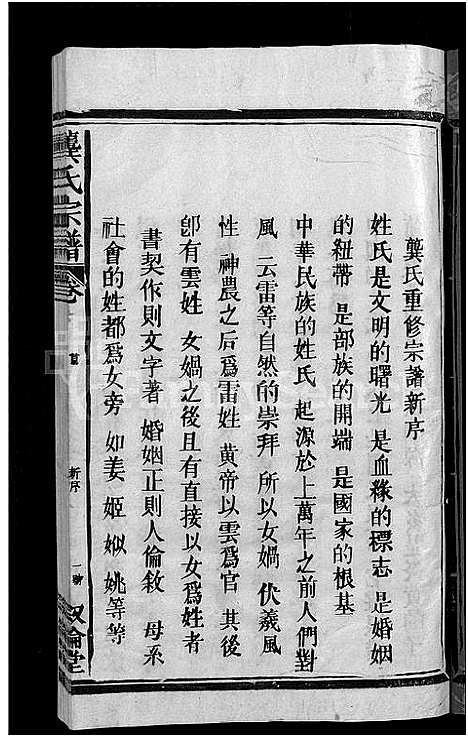 龔氏重修宗譜新序
姓氏是文明的曙光 是血緣的標志 是婚姻
的紐帶 是部族的開端 是國家的根基
中華民族的姓氏 起源於上萬年之前人們對
風 云雷等自然的崇拜 所以女媧 伏羲風
性 神農之后爲雷姓 黄帝以雲爲官 其後
卽有雲姓 女媧之後且有直接以女爲姓者
書契作則文字著 婚姻正則人倫敘 母系
社會的姓都爲女旁 如姜 姬 姒 姚等等
龔氏宗譜
卷首
新序
一
敘倫堂